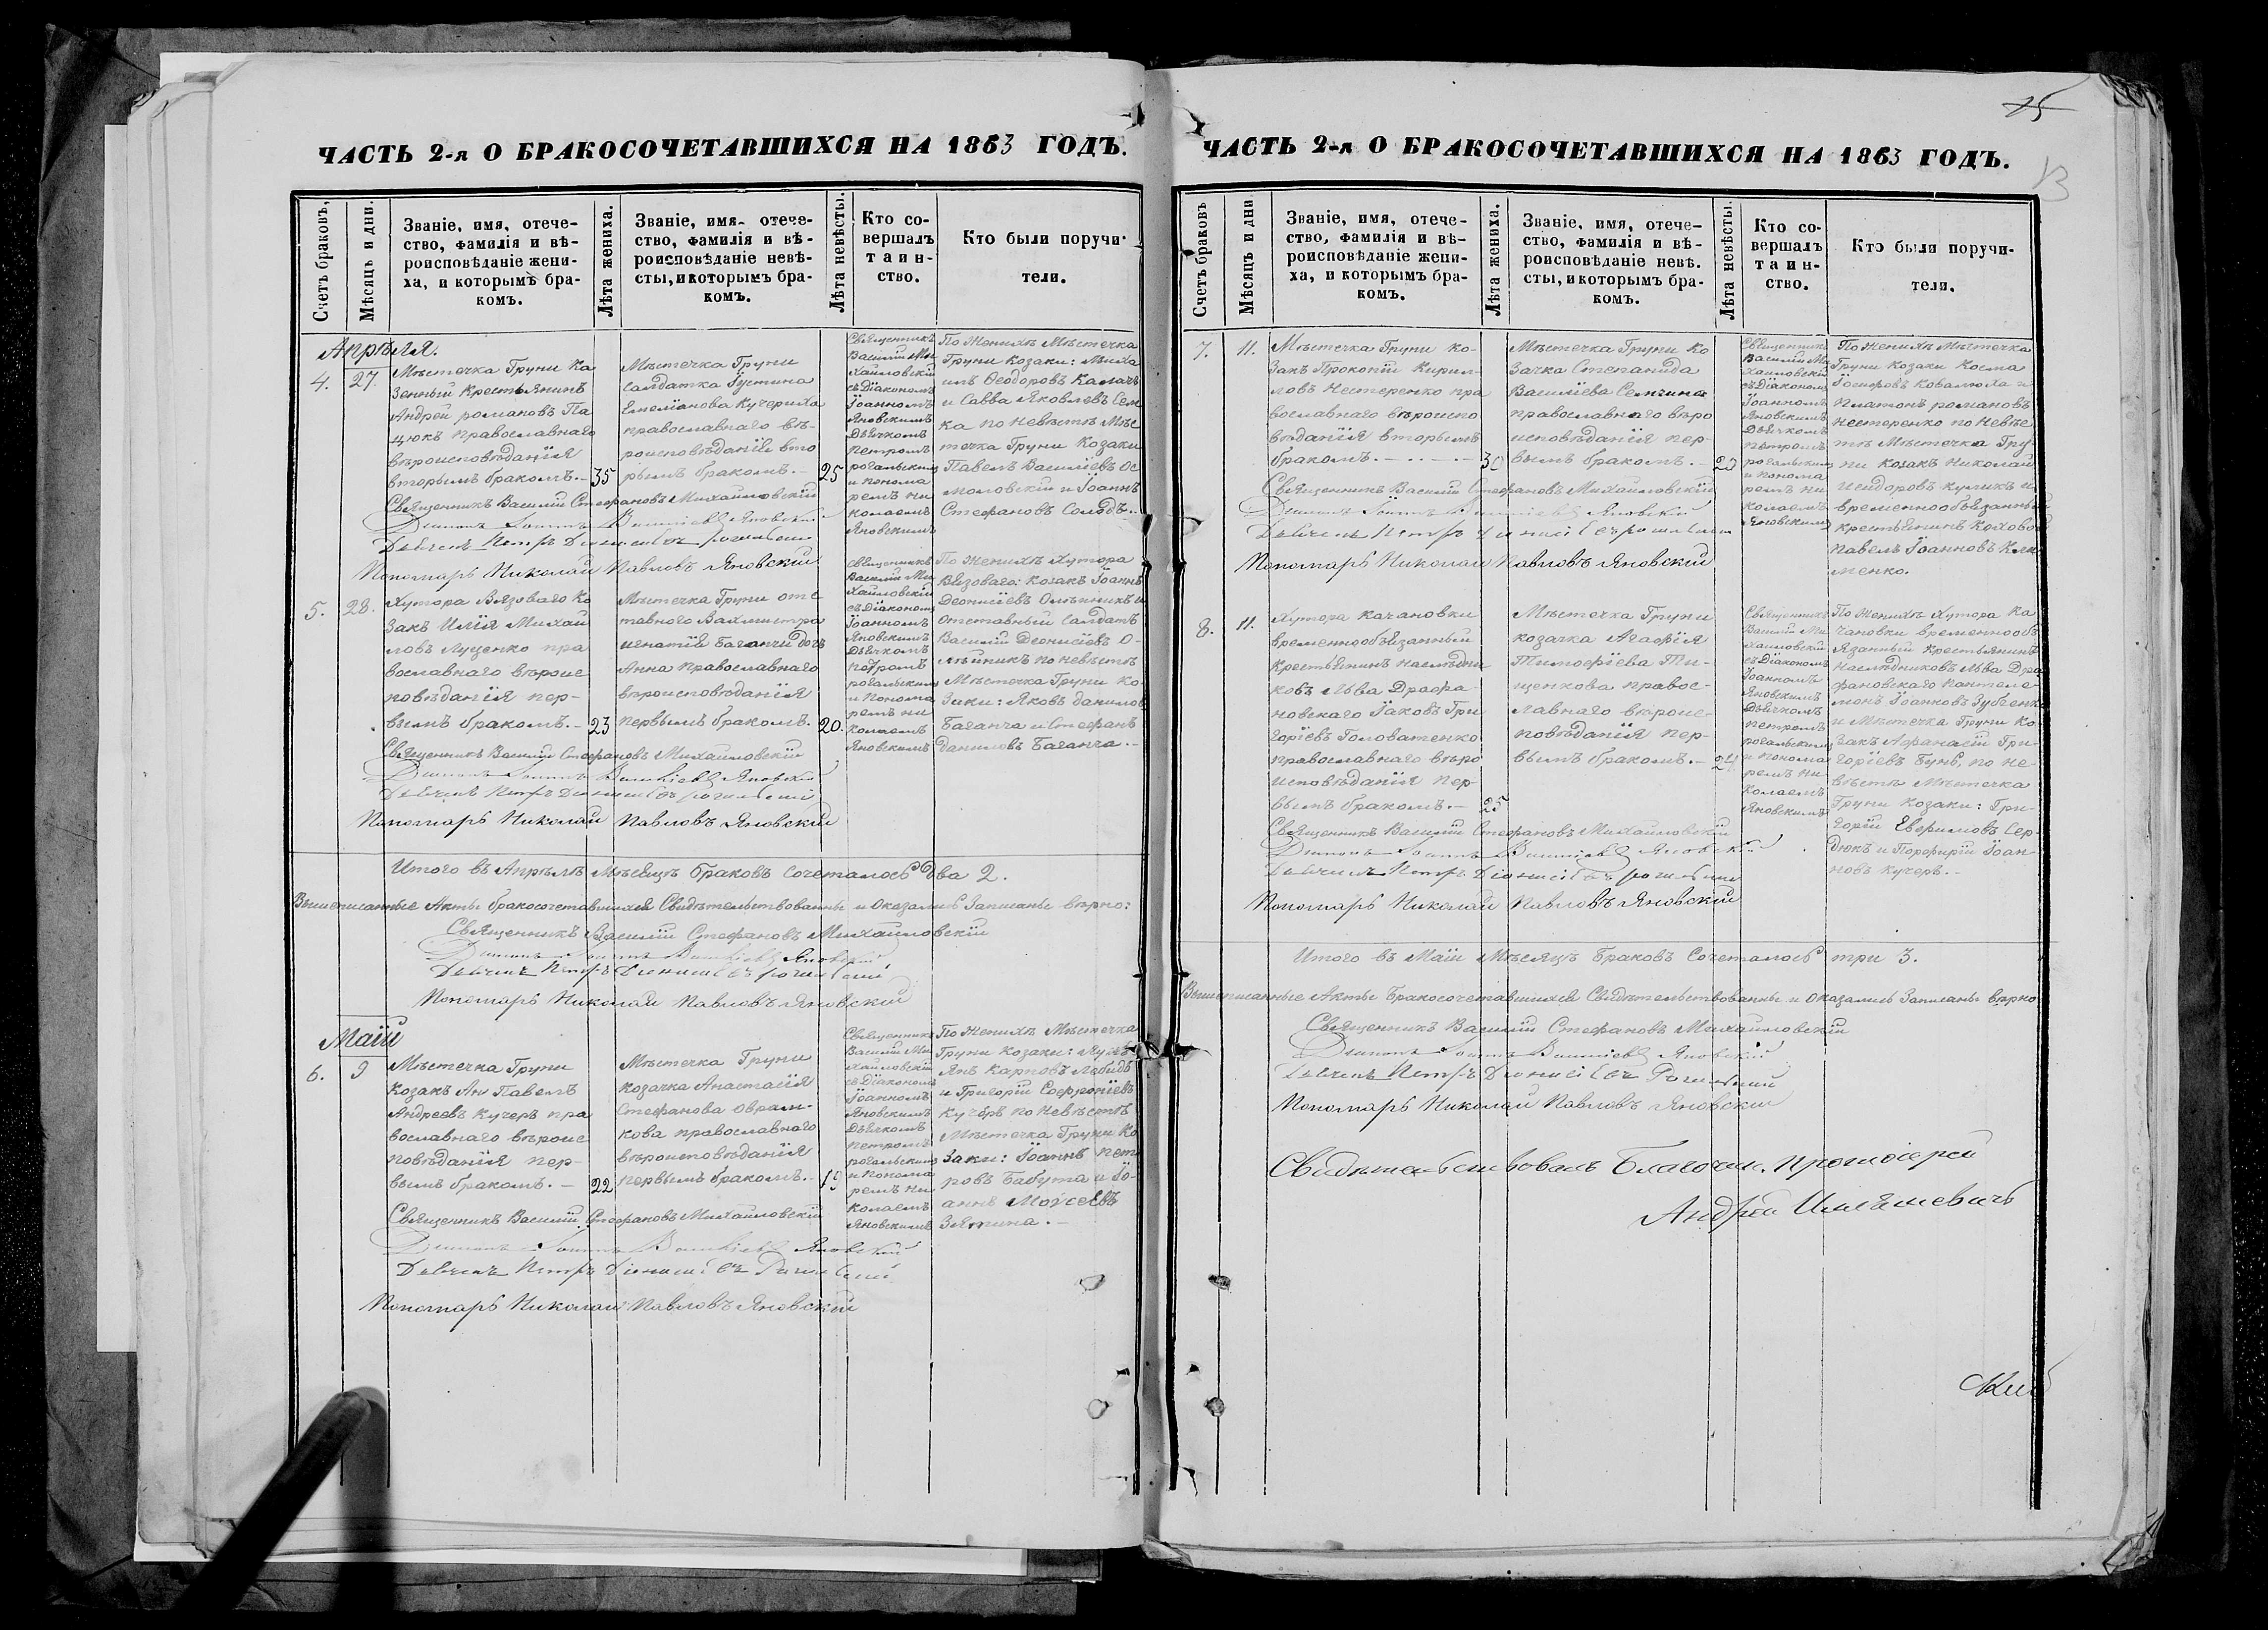 ЧАСТЬ 2-я О БРАКОСОЧЕТАВШИХСЯ НА 1863 ГОДЪ.
Счетъ браковъ,
Мѣсяцъ и дни.
Званіе, имя, отече-
ство, фамилія и вѣ-
роисповѣданіе жени-
ха, и которымъ бра-
комъ.
Лѣта жениха.
Званіе, имя, отече-
ство, фамилія и вѣ-
роисповѣданіе невѣ-
сты, и которымъ бра-
комъ.
Лѣта невѣсты.
Кто со-
вершалъ
таин-
ство.
Кто были поручи-
тели.
Апрѣля.
4.
27.
Мѣстечка Груни Ка
зенный Крестьянинъ
Андрей романовъ Па
цюкъ православнаго
вѣроисповѣданїя
вторымъ бракомъ.-
35
Мѣстечка Груни
салдатка Їустина
Емелїанова Кучериха
православнаго вѣ-
роисповѣданїя вто
рымъ бракомъ.-
25
Священникъ
Василїй Ми
хайловскїй
съ Дїакономъ
Їоанномъ
Яновскимъ
Дьячкомъ
Петромъ
рогальскимъ
и понома
ремъ Ни
колаемъ
Яновскимъ
По Женихѣ Мѣстечка
Груни Козаки: Миха
илъ Ѳеодоровъ Калачъ
и Савва Яковлевъ Сем
ка по невѣстѣ Мѣс
течка Груни Козаки
Павелъ Василїевъ Ос
моловскїй и Їоаннъ
Стефановъ
Священникъ Василїй Стефановъ Михайловскїй
Діаконъ Іоаннъ Яновскій
Дьячекъ Петръ Діонисіевъ Рогальскій
Пономарь Николай Павловъ Яновскїй
5.
28.
Хутора Вязоваго Ко
закъ Илїя Михай
ловъ Луценко пра
вославнаго вѣроис
повѣданїя пер-
вымъ бракомъ.-
23
Мѣстечка Груни отс
тавнаго Вахмистра
игнатїя Баганчи дочь
Анна православнаго
вѣроисповѣданїя
первымъ бракомъ.
20.
Священникъ
Василїй Ми
хайловскїй
съ Дїакономъ
Їоанномъ
Яновскимъ
Дьячкомъ
петромъ
рогальскимъ
и Понома
ремъ Ни
колаемъ
Яновскимъ
По Женихѣ Хутора
Вязоваго: Козакъ Їоаннъ
Деонисїевъ Олѣйникъ и
отставный Салдатъ
Василїй Деонисїевъ О-
лѣйникъ по невѣстѣ
Мѣстечка Груни Ко
заки: Яковъ данилов
Баганча и Стефанъ
даниловъ Баганча.-
Священникъ Василїй Стефановъ Михайловскїй
Діаконъ Іоаннъ Яновскій
Дьячекъ Петръ Діонисіевъ Рогальскій
Пономарь Николай Павловъ Яновскїй
Итого въ Апрѣлѣ Мѣсяцѣ Браковъ сочеталось Два 2.
Вышеписанные Акты бракосочетавшихся Свидѣтельствованны и Оказались Записаны вѣрно:
Священникъ Василїй Стефановъ Михайловскїй
Діаконъ Іоаннъ Яновскій
Дьячекъ Петръ Діонисіевъ Рогальскій
Пономарь Николай Павловъ Яновскїй
Маїй
6.
9
Мѣстечка Груни
Козакъ Ан Павелъ
Андреевъ Кучеръ пра
вославнаго вѣроис
повѣданїя пер-
вымъ бракомъ.-
22
Мѣстечка Груни
козачка Анастасїя
Стефанова Оврам-
кова православнаго
вѣроисповѣданїя
первымъ бракомъ.-
19
Священникъ
Василїй Ми
хайловскїй
съ Дїакономъ
Їоанномъ
Яновскимъ
Дьячкомъ
Петромъ
рогальскимъ
и Понома
ремъ Ни
колаемъ
Яновскимъ
По Женихѣ Мѣстечка
Груни Козаки: Лукь
янъ Карповъ Лабидь
и Григорїй Софронїевъ
Кучеръ по Невѣстѣ
Мѣстечка Груни Ко
заки: Їоаннъ Пет
ровъ Бабута и Їо-
аннъ Моѵсеевъ
Зятина.-
Священникъ Василїй Стефановъ Михайловскїй
Діаконъ Іоаннъ Яновскій
Дьячекъ Петръ Діонисіевъ Рогальскій
Пономарь Николай Павловъ Яновскїй
ЧАСТЬ 2-я О БРАКОСОЧЕТАВШИХСЯ НА 1863 ГОДЪ.
13
Счетъ браковъ
Мѣсяцъ и дни.
Званіе, имя, отече-
ство, фамилія и вѣ-
роисповѣданіе жени-
ха, и которымъ бра-
комъ.
Лѣта жениха.
Званіе, имя, отече-
ство, фамилія и вѣ-
роисповѣданіе невѣ-
сты, и которымъ бра-
комъ.
Лѣта невѣсты.
Кто со-
вершалъ
таин-
ство.
Кто были поручи-
тели.
7.
11.
Мѣстечка Груни ко-
закъ Прокопїй Кирил-
ловъ Нестеренко пра
вославнаго вѣроиспо
вѣданїя вторымъ
бракомъ.-
30
Мѣстечка Груни Ко
зачка Степанида
Василїева Семчина
православнаго вѣро
исповѣданїя пер-
вымъ бракомъ.-
Священникъ
Василїй Ми
хайловскїй
съ Дїакономъ
Їоанномъ
Яновскимъ
Дьячкомъ
Петромъ
рогальскимъ
и понома
ремъ Ни
колаемъ
Яновскимъ
По Женихѣ Мѣстечка
Груни Козаки Косма
Їосифовъ Ковалюха и
Платонъ романовъ
Нестеренко по Невѣс
тѣ Мѣстечка Гру-
ни козакъ Николай
Исидоровъ Куликъ и
временнообязанный
крестьянинъ
павелъ Їоанновъ Кли
менко.
Священникъ Василїй Стефановъ Михайловскїй
Діаконъ Іоаннъ Яновскій
Дьячекъ Петръ Діонисіевъ Рогальскій
Пономарь Николай Павловъ Яновскїй
8.
11.
Хутора Качановки
временнообязанный
крестьянинъ наслѣдни
ковъ Льва Драфа-
новскаго Їаковъ Гри
горїевъ Головатенко
православнаго вѣро
исповѣданїя пер-
вымъ бракомъ.-
25
Мѣстечка Груни
козачка Агафїя
Тимофїева Ти-
щенкова правос-
лавнаго вѣроис-
повѣданїя пер-
вымъ бракомъ.-
24
Священникъ
Василїй Ми
хайловскїй
съ Дїакономъ
Їоанномъ
Яновскимъ
Дьячкомъ
петромъ
рогальскимъ
и понома
ремъ Ни
колаемъ
Яновскимъ
По Женихѣ Хутора Ка
чановки временнооб
язанный крестьянинъ
Наслѣдниковъ Льва Дра
фановскаго Пантеле
монъ Їоанновъ Губенко
и Мѣстечка Груни Ко
закъ Афанасїй Гри-
горїевъ Бунь, по не
вѣстѣ Мѣстечка
Груни Козаки: Гри-
горїй Евфимовъ Сер
дюкъ и Порфирїй Їоан
новъ Кучеръ.-
Священникъ Василїй Стефановъ Михайловскїй
Діаконъ Іоаннъ Яновскій
Дьячекъ Петръ Діонисіевъ Рогальскій
Пономарь Николай Павловъ Яновскїй
Итого въ Маїи Мѣсяцѣ Браковъ Сочеталось три 3.
Вышеписанные Акты Бракосочетавшихся Свидѣтельствованны и Оказались Записаны вѣрно
Священникъ Василїй Стефановъ Михайловскїй
Діаконъ Іоаннъ Яновскій
Дьячекъ Петръ Діонисіевъ Рогальскій
Пономарь Николай Павловъ Яновскїй
Свидѣтельствовалъ Благочин. Протоіерей
Андрей